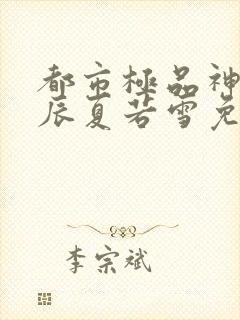 都市極品神
辰夏若雪免
李宗斌